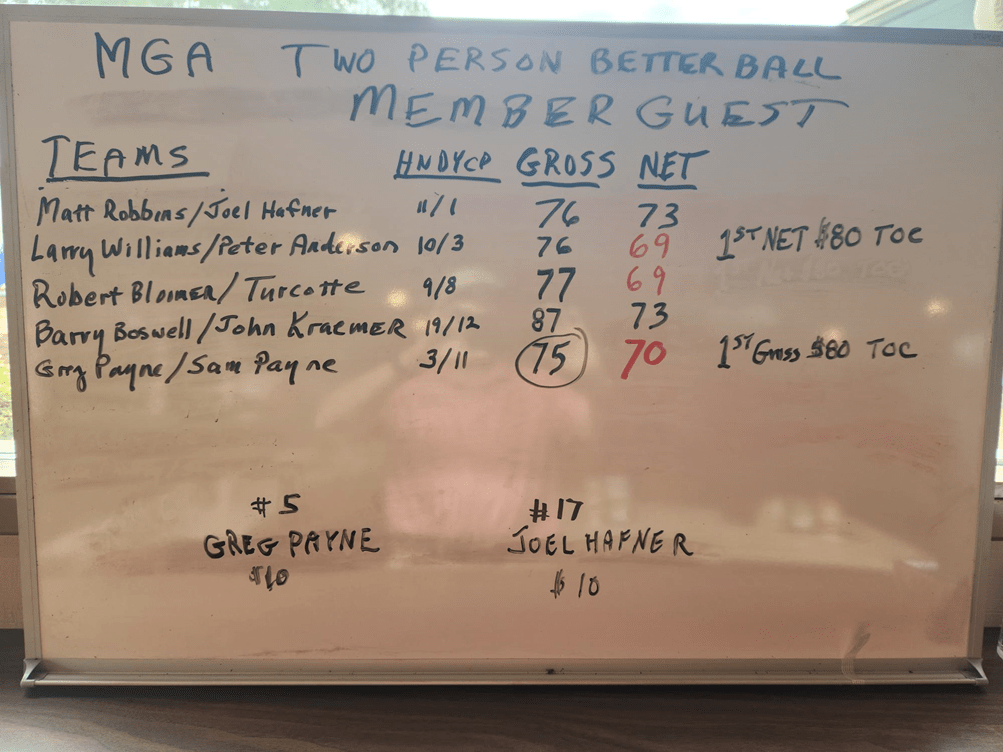 MGA TWO PERSON BETTER BALL
MEMBER GUEST
TEAMS HNDYCP GROSS NET
Matt Robbins/Joel Hafner 11/1 76 73
Larry Williams/Peter Anderson 10/3 76 69 1ST NET $80 TOC
Robert Bloomer/Turcotte 9/8 77 69
Barry Boswell/John Kraemer 19/12 87 73
Greg Payne/Sam Payne 3/11 75 70 1ST Gross $80 TOC
#5 #17
GREG PAYNE JOEL HAFNER
$10 $10